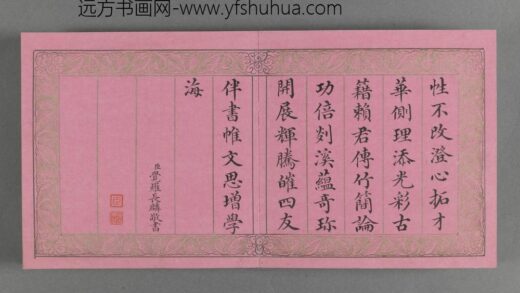 远方书画网-www.yfshuhua.com
性不改澄心拓才
華側理添光彩古
籍賴君傳竹簡論
功倍剡溪蘊奇珎
開展輝騰皠四友
伴書帷文思增學
海
臣覺羅長麟敬書